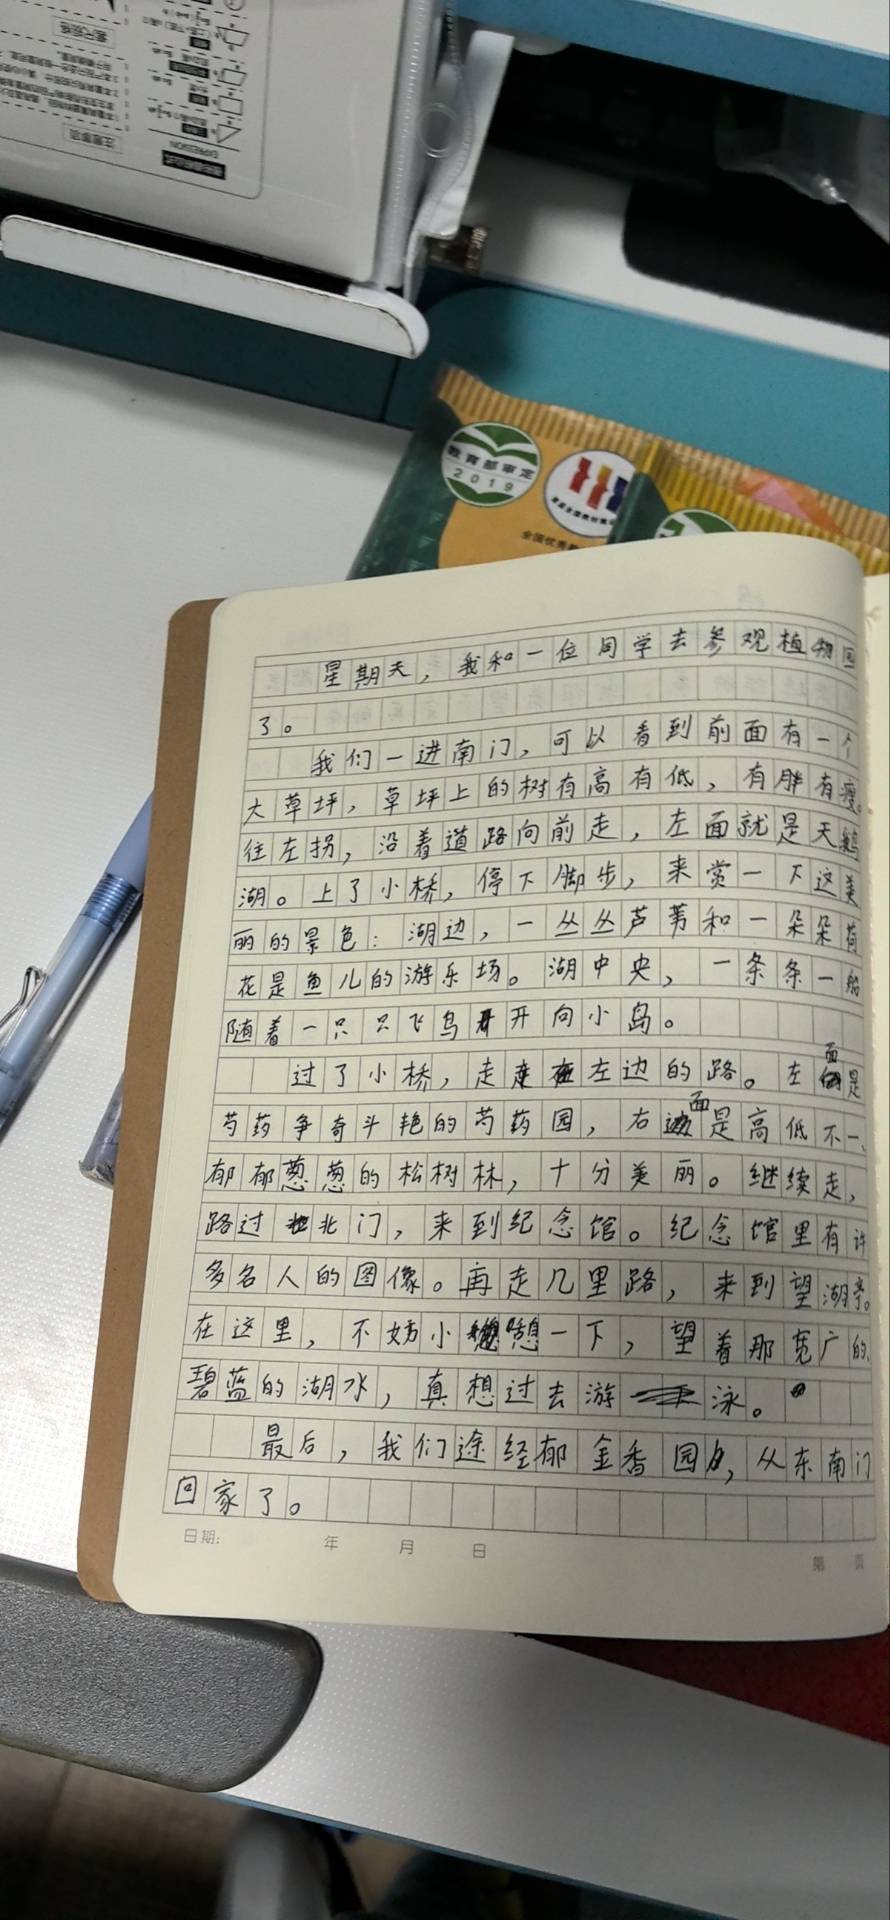 注意事项
EXPRESSION
教育部审定
2019
星期天，我和一位同学去参观植物园
了。
我们一进南门，可以看到前面有一个
大草坪，草坪上的树有高有低，有胖有瘦。
往左拐，沿着道路向前走，左面就是天鹅
湖。上了小桥，停下脚步，来赏一下这美
丽的景色：湖边，一丛丛芦苇和一朵朵荷
花是鱼儿的游乐场。湖中央，一条条一船
随着一只只飞鸟开向小岛。
过了小桥，走左边的路。左面是
芍药争奇斗艳的芍药园，右面是高低不一、
郁郁葱葱的松树林，十分美丽。继续走，
路过北门，来到纪念馆。纪念馆里有许
多名人的图像。再走几里路，来到望湖亭。
在这里，不妨小憩一下，望着那宽广的、
碧蓝的湖水，真想过去游泳。
最后，我们途经郁金香园，从东南门
回家了。
日期： 年 月 日
第 页